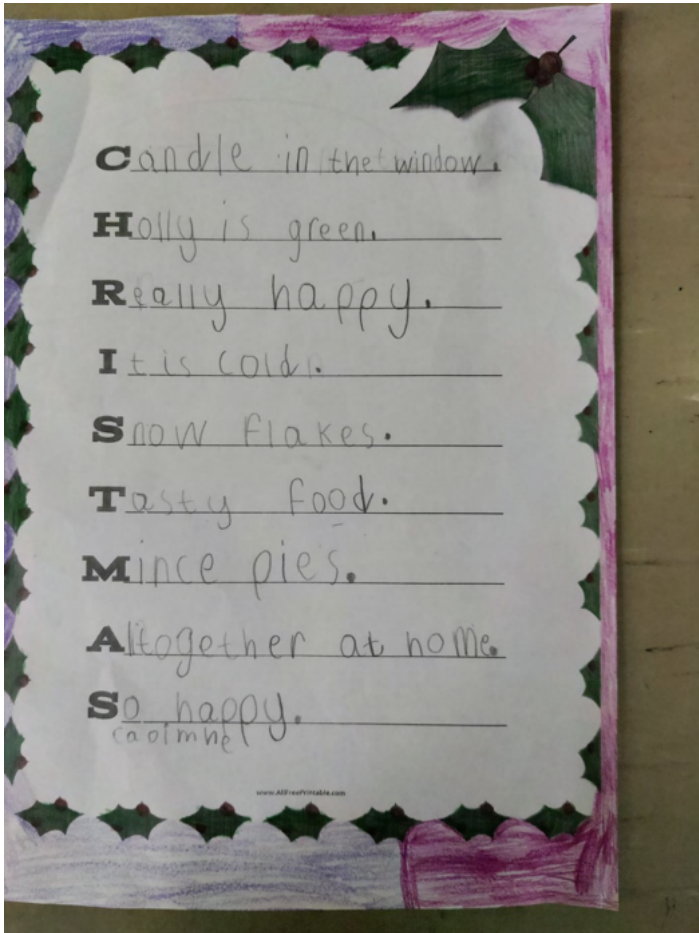 Candle in the window.
Holly is green.
Really happy.
It is cold.
Snow flakes.
Tasty food.
Mince pies.
Altogether at home.
So happy.
caoimhe
www.AllFreePrintable.com